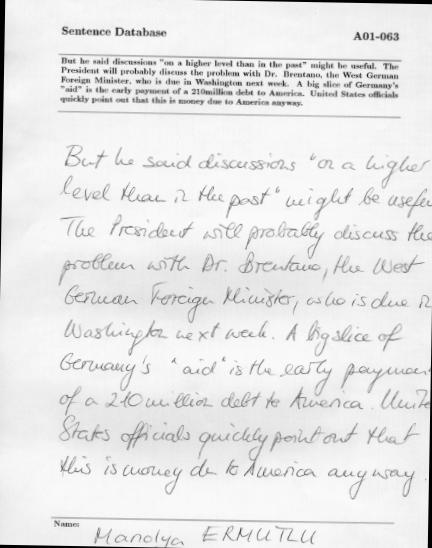 Sentence Database
A01-063
But he said discussions "on a higher level than in the past" might be useful. The
President will probably discuss the problem with Dr. Brentano, the West German
Foreign Minister, who is due in Washington next week. A big slice of Germany's
"aid" is the early payment of a 210million debt to America. United States officials
quickly point out that this is money due to America anyway.
But he said discussions "on a higher
level than in the past" might be useful
The President will probably discuss the
problem with Dr. Brentano, the West
German Foreign Minister, who is due in
Washington next week. A big slice of
Germany's "aid" is the early paymen
of a 210 million debt to America. Unite
States officials quickly point out that
this is money due to America anyway.
Name:
Manolya ERMUTLU